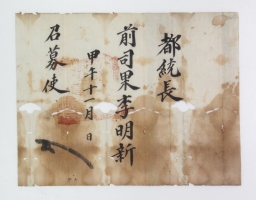 都統長
前司果李明新
甲午十一月 日
召募使